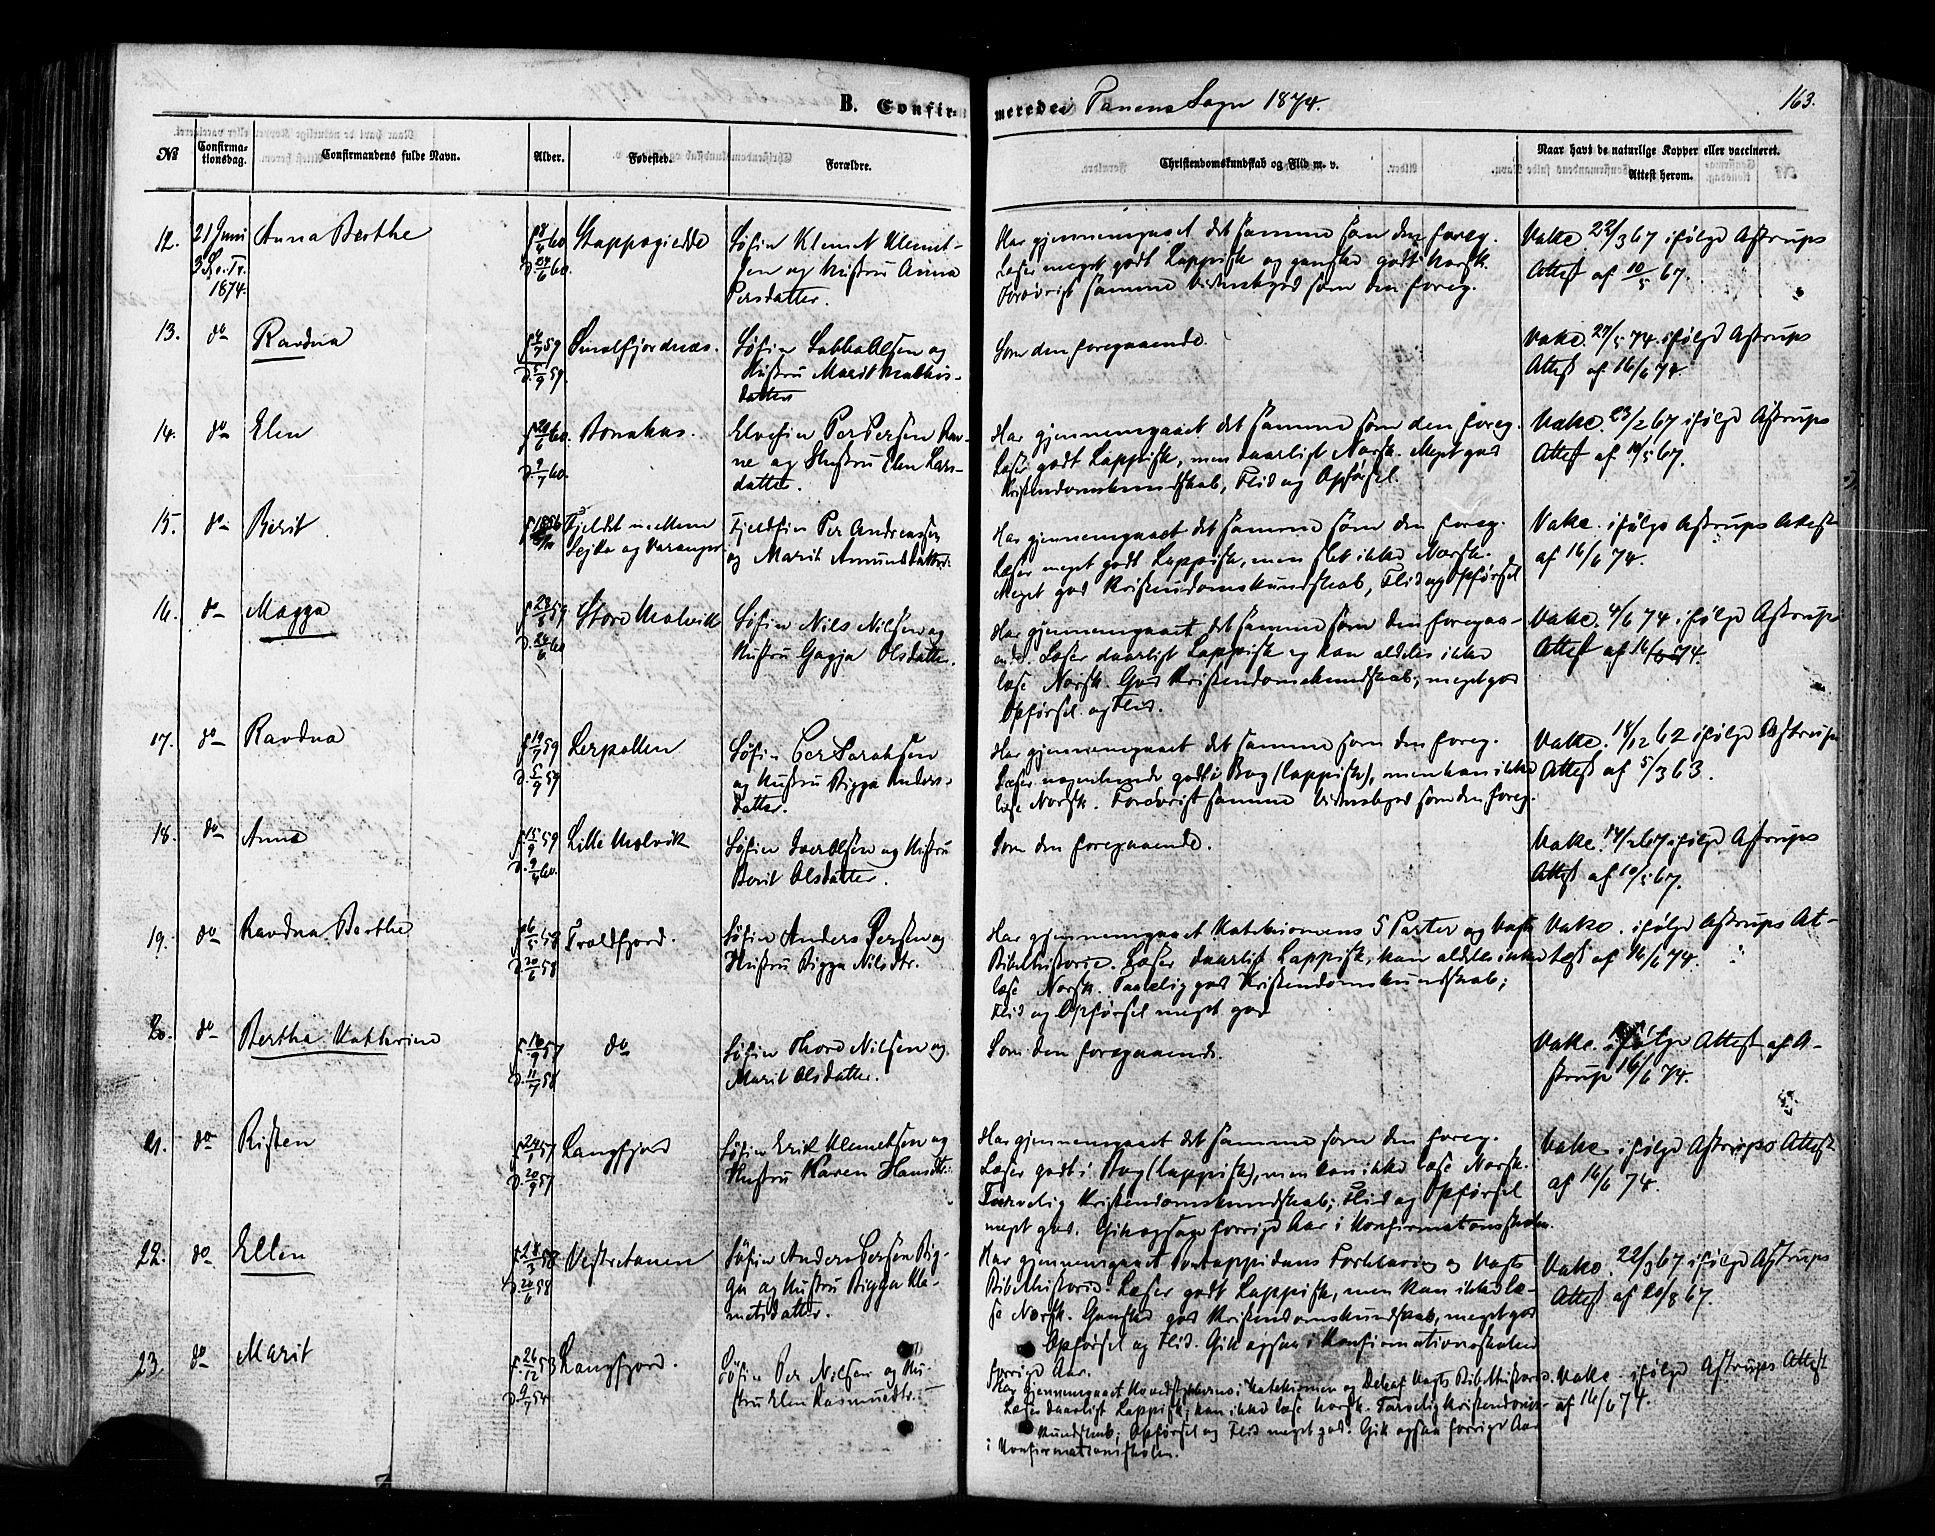 B. Confirmerede i Tanens Sogn 1874. 163.
№ Confirmationsdag. Confirmandens fulde Navn. Alder. Fødested. Forældre. Christendomskundskab og Flid m. v. Naar havt de naturlige Kopper eller vaccineret. Attest herom.
12. 21 Juni 3 S. e. Tr. 1874. Anna Berthe
Stappogiedde
Søfin Klemet Klemet-
sen og Hustru Anna
Persdatter.
Har gjennemgaaet det samme som den foreg.
Læser meget godt Lappisk og ganske godt Norsk.
Forøvrigt samme Vidnesbyrd som den foreg.
Vakc. 22/3 67 ifølge Astrups
Attest af 10/5 67.
13. do Ravdna
f 4/7 59
d. 5/9 59.
Smalfjordnæs.
Søfin Sabba Olsen og
Hustru Marit Mathis-
datter
Som den foregaaende.
Vakc. 27/5 74. ifølge Astrups
Attest af 16/6 74.
14. do Elen
d. 2/7 60.
Bonakas.
Elvefin Per Persen Rav-
ne og Hustru Elen Lars-
datter.
Har gjennemgaaet det samme som den foreg.
Læser godt Lappisk, men daarligt Norsk. Meget god
Kristendomskundskab, Flid og Opførsel.
Vakc. 23/2 67 ifølge Astrups
Attest af 10/5 67.
15. do Berit
Fjeldet mellem
og Varanger
Fjeldfin Per Andreassen
og Marit Amundsdatter.
Har gjennemgaaet det samme som den foreg.
Læser meget godt Lappisk, men slet ikke Norsk.
Meget god Kristendomskundskab, Flid og Opførsel
Vakc. ifølge Astrups Attest
af 16/6 74.
16. do Magga
Store Molvik
Søfin Nils Nilsen og
Hustru Gagja Olsdatter.
Har gjennemgaaet det samme som den foregaa-
ende. Læser daarligt Lappisk og kan aldeles ikke
læse Norsk. God Kristendomskundskab, meget god
Opførsel og Flid.
Vakc. 4/6 74 ifølge Astrups
Attest af 16/6 74.
17. do Ravdna
f 19/7 59
d. 5/9 59
Lerpollen
Søfin Per Sarahsen
og Hustru Bigga Anders-
datter.
Har gjennemgaaet det samme som den foreg.
Læser nogenlunde godt i Bog (lappisk), men kan ikke
læse Norsk. Forøvrigt samme Vidnesbyrd som den foreg.
Vakc. 18/12 62 ifølge Astrups
Attest af 5/3 63.
18. do Anne
f. 15/9 59
d. 9/4 60.
Lille Molvik
Søfin Iver Olsen og Hustru
Berit Olsdatter.
Som den foregaaende.
Vakc. 14/2 67 ifølge Astrups
Attest af 10/5 67.
19. do Ravdna Berthe
f 6/5 58
d. 20/6 58
Troldfjord.
Søfin Anders Persen og
Hustru Bigga Nilsdtr.
Har gjennemgaaet Katekismens 5 Parter og Vogts
Bibelhistorie. Læser daarligt Lappisk, kan aldeles ikke
læse Norsk. Taalelig god Kristendomskundskab;
Flid og Opførsel meget god
Vakc. ifølge Astrups At-
test af 16/6 74.
20. do Bertha Kathrine
do
Søfin Thore Nilsen og
Marit Olsdatter.
Som den foregaaende.
Vakc. ifølge Attest af A-
strup 16/6 74.
21. do Risten
d. 20/9 57
Langfjord
Søfin Erik Klemetsen og
Hustru Karen Hansdtr.
Har gjennemgaaet det samme som den foreg.
Læser godt i Bog (lappisk), men kan ikke læse Norsk.
Tarvelig Kristendomskundskab; Flid og Opførsel
meget god. Gik ogsaa forrige Aar i Konfirmationsskolen.
Vakc. ifølge Astrups Attest
af 16/6 74.
22. do Ellen
d. 20/6 58
Vestretanen
Søfin Anders Persen Big-
ga og Hustru Bigga Kle-
metsdatter.
Har gjennemgaaet Pontoppidans Forklaring og Vogts
Bibelhistorie. Læser godt Lappisk, men kan ikke læ-
se Norsk. Ganske god Kristendomskundskab, meget god
Opførsel og Flid. Gik ogsaa i Konfirmationsskolen
forrige Aar.
Vakc. 22/3 67 ifølge Astrups
Attest af 20/8 67.
23. do Marit
f. 26/12 53
d. 9/7 54
Langfjord.
Søfin Per Nilsen og Hu-
stru Elen Rasmusdtr.
Har gjennemgaaet Hovedstykkerne i Katekismen og Del af Vogts Bibelhistorie.
Læser daarligt Lappisk; kan ikke læse Norsk. Tarvelig Kristendoms-
kundskab; Opførsel og Flid meget god. Gik ogsaa forrige Aar
i Konfirmationsskolen.
Vakc. ifølge Astrups Attest
af 16/6 74.